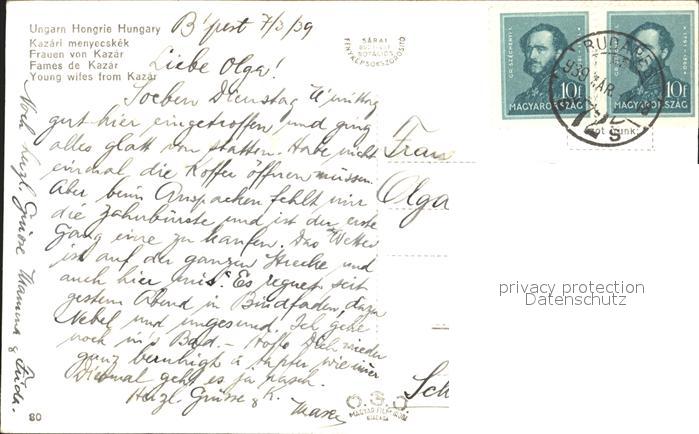 Ungarn Hongrie Hungary
Kazári menyecskék
Frauen von Kazár
Fames de Kazár
Young wifes from Kazár
B'pest 7/3/39
Liebe Olga!
Soeben Dienstag Mittag
gut hier eingetroffen und ging
alles glatt von statten. Habe nicht
einmal die Koffer öffnen müssen.
Aber beim Auspacken fehlt mir
die Zahnbürste und ist der erste
Gang eine zu kaufen. Das Wetter
ist auf der ganzen Strecke und
auch hier mis. Es regnet seit
gestern Abend in Bindfaden, dazu
Nebel und ungesund. Ich gehe
noch in's Bad - Hoffe Dich wieder
ganz beruhigt & tapfer wie immer
Diesmal geht es ja rasch.
Herzl. Grüsse & K.
Noch herzl. Grüsse
80
SÁRAI
FÉNYKÉPSOKSZOROSITÓ
GR. SZÉCHENYI I.
10f
MAGYARORSZÁG
10f
MAGYARORSZÁG
BUDAPEST
939 MÁR
Frau
Olga
Sch
MAGYAR FILM IRODA
KIADÁSA
privacy protection
Datenschutz